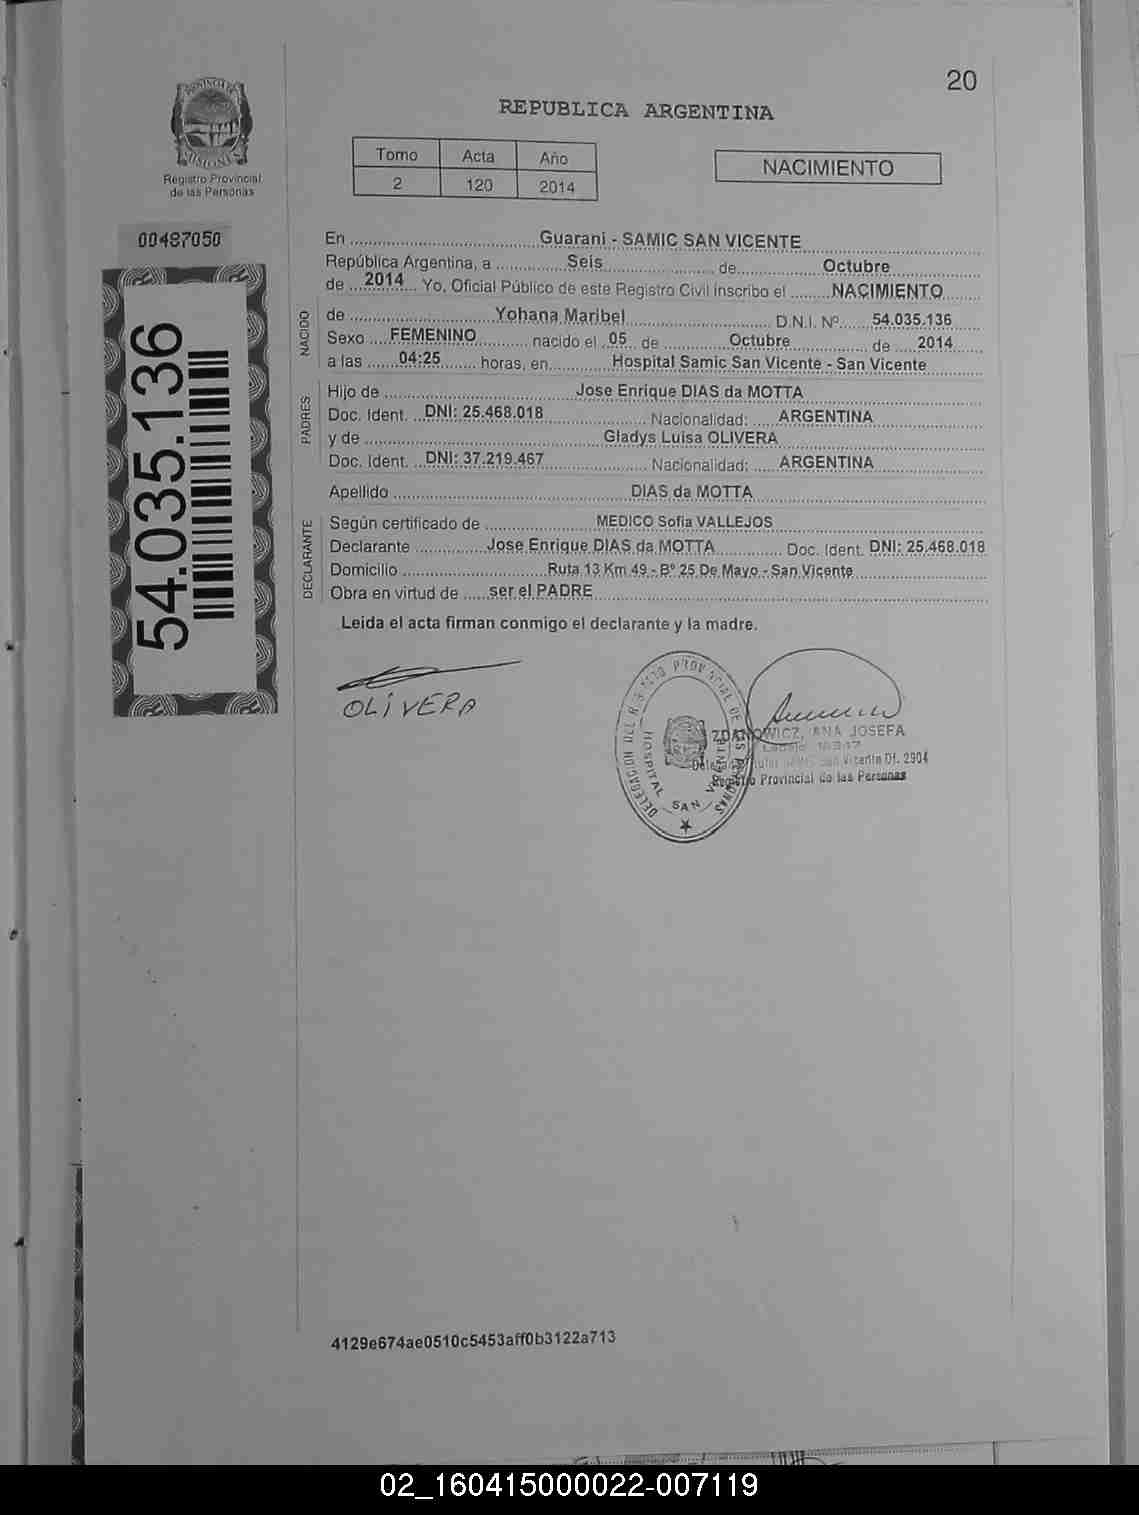 20
REPUBLICA ARGENTINA
PROVINCIA DE
MISIONES
Registro Provincial
de las Personas
Tomo Acta Año
2 120 2014
NACIMIENTO
00487050
54.035.136
En Guarani - SAMIC SAN VICENTE
República Argentina, a Seis de Octubre
de 2014 Yo, Oficial Público de este Registro Civil inscribo el NACIMIENTO
NACIDO
de Yohana Maribel D.N.I. Nº 54.035.136
Sexo FEMENINO nacido el 05 de Octubre de 2014
a las 04:25 horas, en Hospital Samic San Vicente - San Vicente
PADRES
Hijo de Jose Enrique DIAS da MOTTA
Doc. Ident. DNI: 25.468.018 Nacionalidad: ARGENTINA
y de Gladys Luisa OLIVERA
Doc. Ident. DNI: 37.219.467 Nacionalidad: ARGENTINA
Apellido DIAS da MOTTA
DECLARANTE
Según certificado de MEDICO Sofia VALLEJOS
Declarante Jose Enrique DIAS da MOTTA Doc. Ident. DNI: 25.468.018
Domicilio Ruta 13 Km 49 - Bº 25 De Mayo - San Vicente
Obra en virtud de ser el PADRE
Leida el acta firman conmigo el declarante y la madre.
OLIVERA
DELEGACION DEL REGISTRO PROVINCIAL DE LAS PERSONAS
HOSPITAL SAN VICENTE
ZDANOWICZ, ANA JOSEFA
San Vicente Of. 2904
Registro Provincial de las Personas
4129e674ae0510c5453aff0b3122a713
02_160415000022-007119